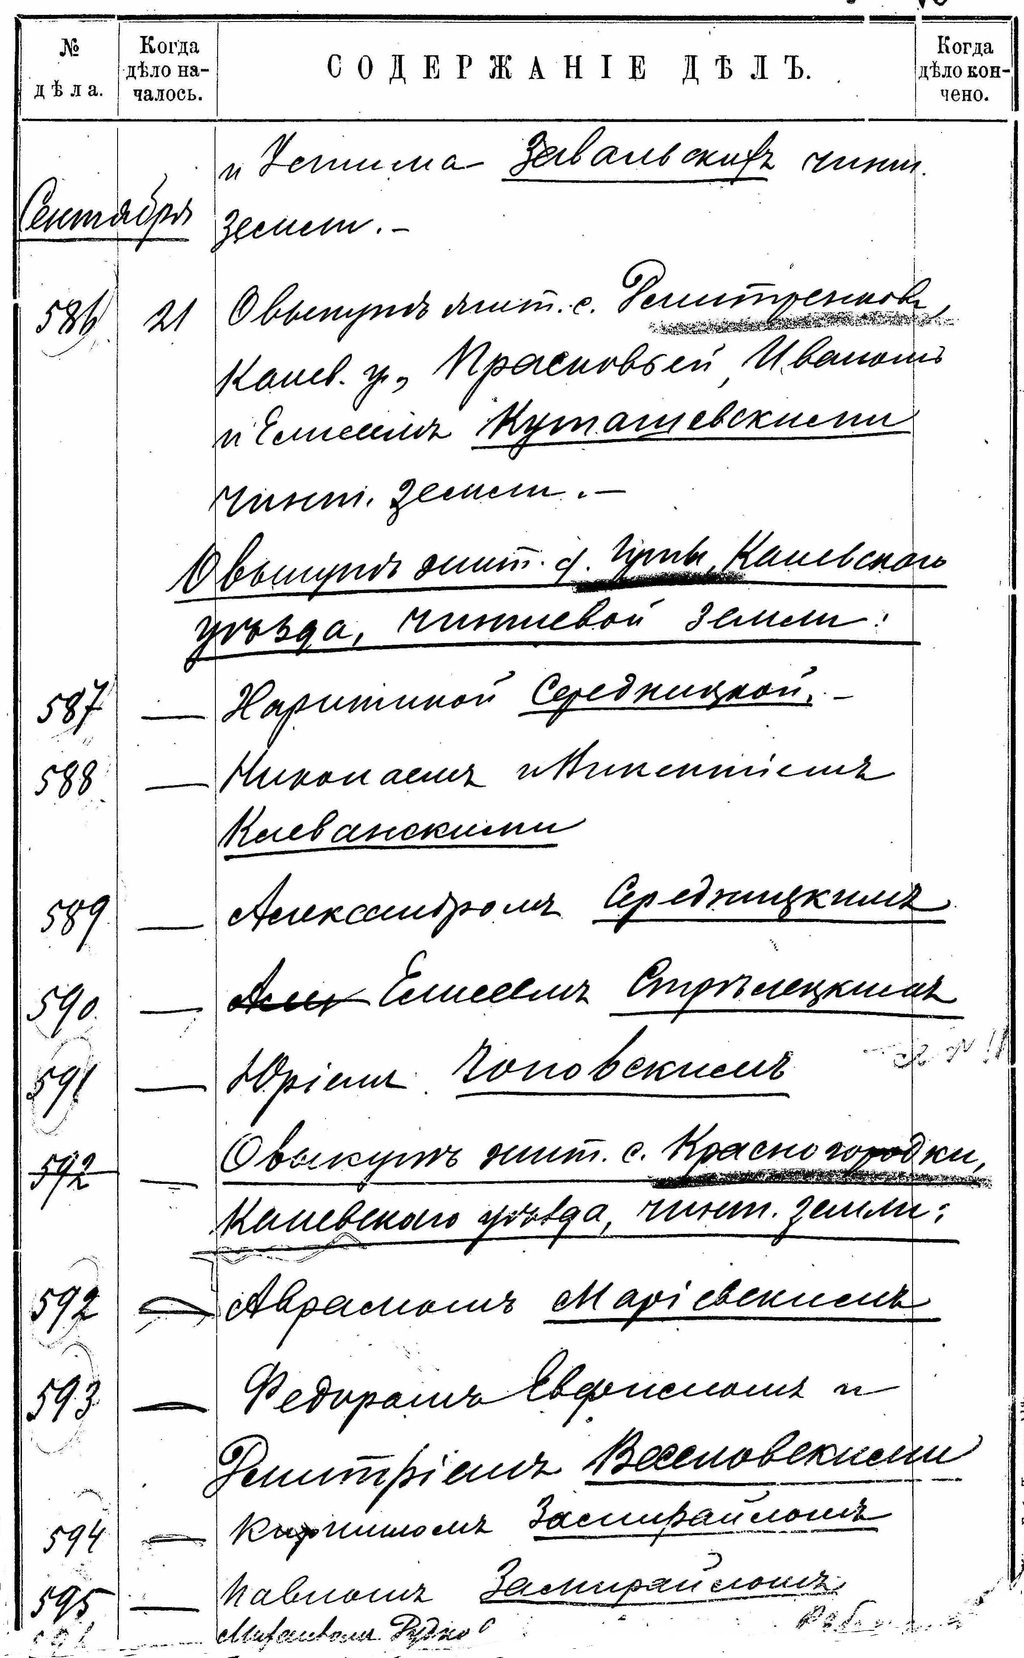 № дѣла.
Когда дѣло началось.
СОДЕРЖАНІЕ ДѢЛЪ.
Когда дѣло кончено.
и Устима Завальскихъ чинш.
Сентября
земли.-
586 21 О выкупѣ жит. с. Дмитренковъ,
Канев. у., Прасковьей, Иваномъ
и Елисеемъ Куташевскими
чинш. земли.-
О выкупѣ жит. с. Гуты, Каневского
уѣзда, чиншевой земли:
587 — Харитиной Середницкой.-
588 — Николаемъ и Викентіемъ
Клеванскими
589 — Александромъ Середницкимъ
590 — Елисеемъ Стрѣлецкимъ
591 — Юріемъ Чоповскимъ
592 — О выкупѣ жит. с. Красногородки,
Каневского уѣзда, чинш. земли:
592 — Аврамомъ Маріевскимъ
593 — Федоромъ Евфимомъ и
Дмитріемъ Василовскими
594 — Кирилломъ Засмирайломъ
595 — Павломъ Засмирайломъ